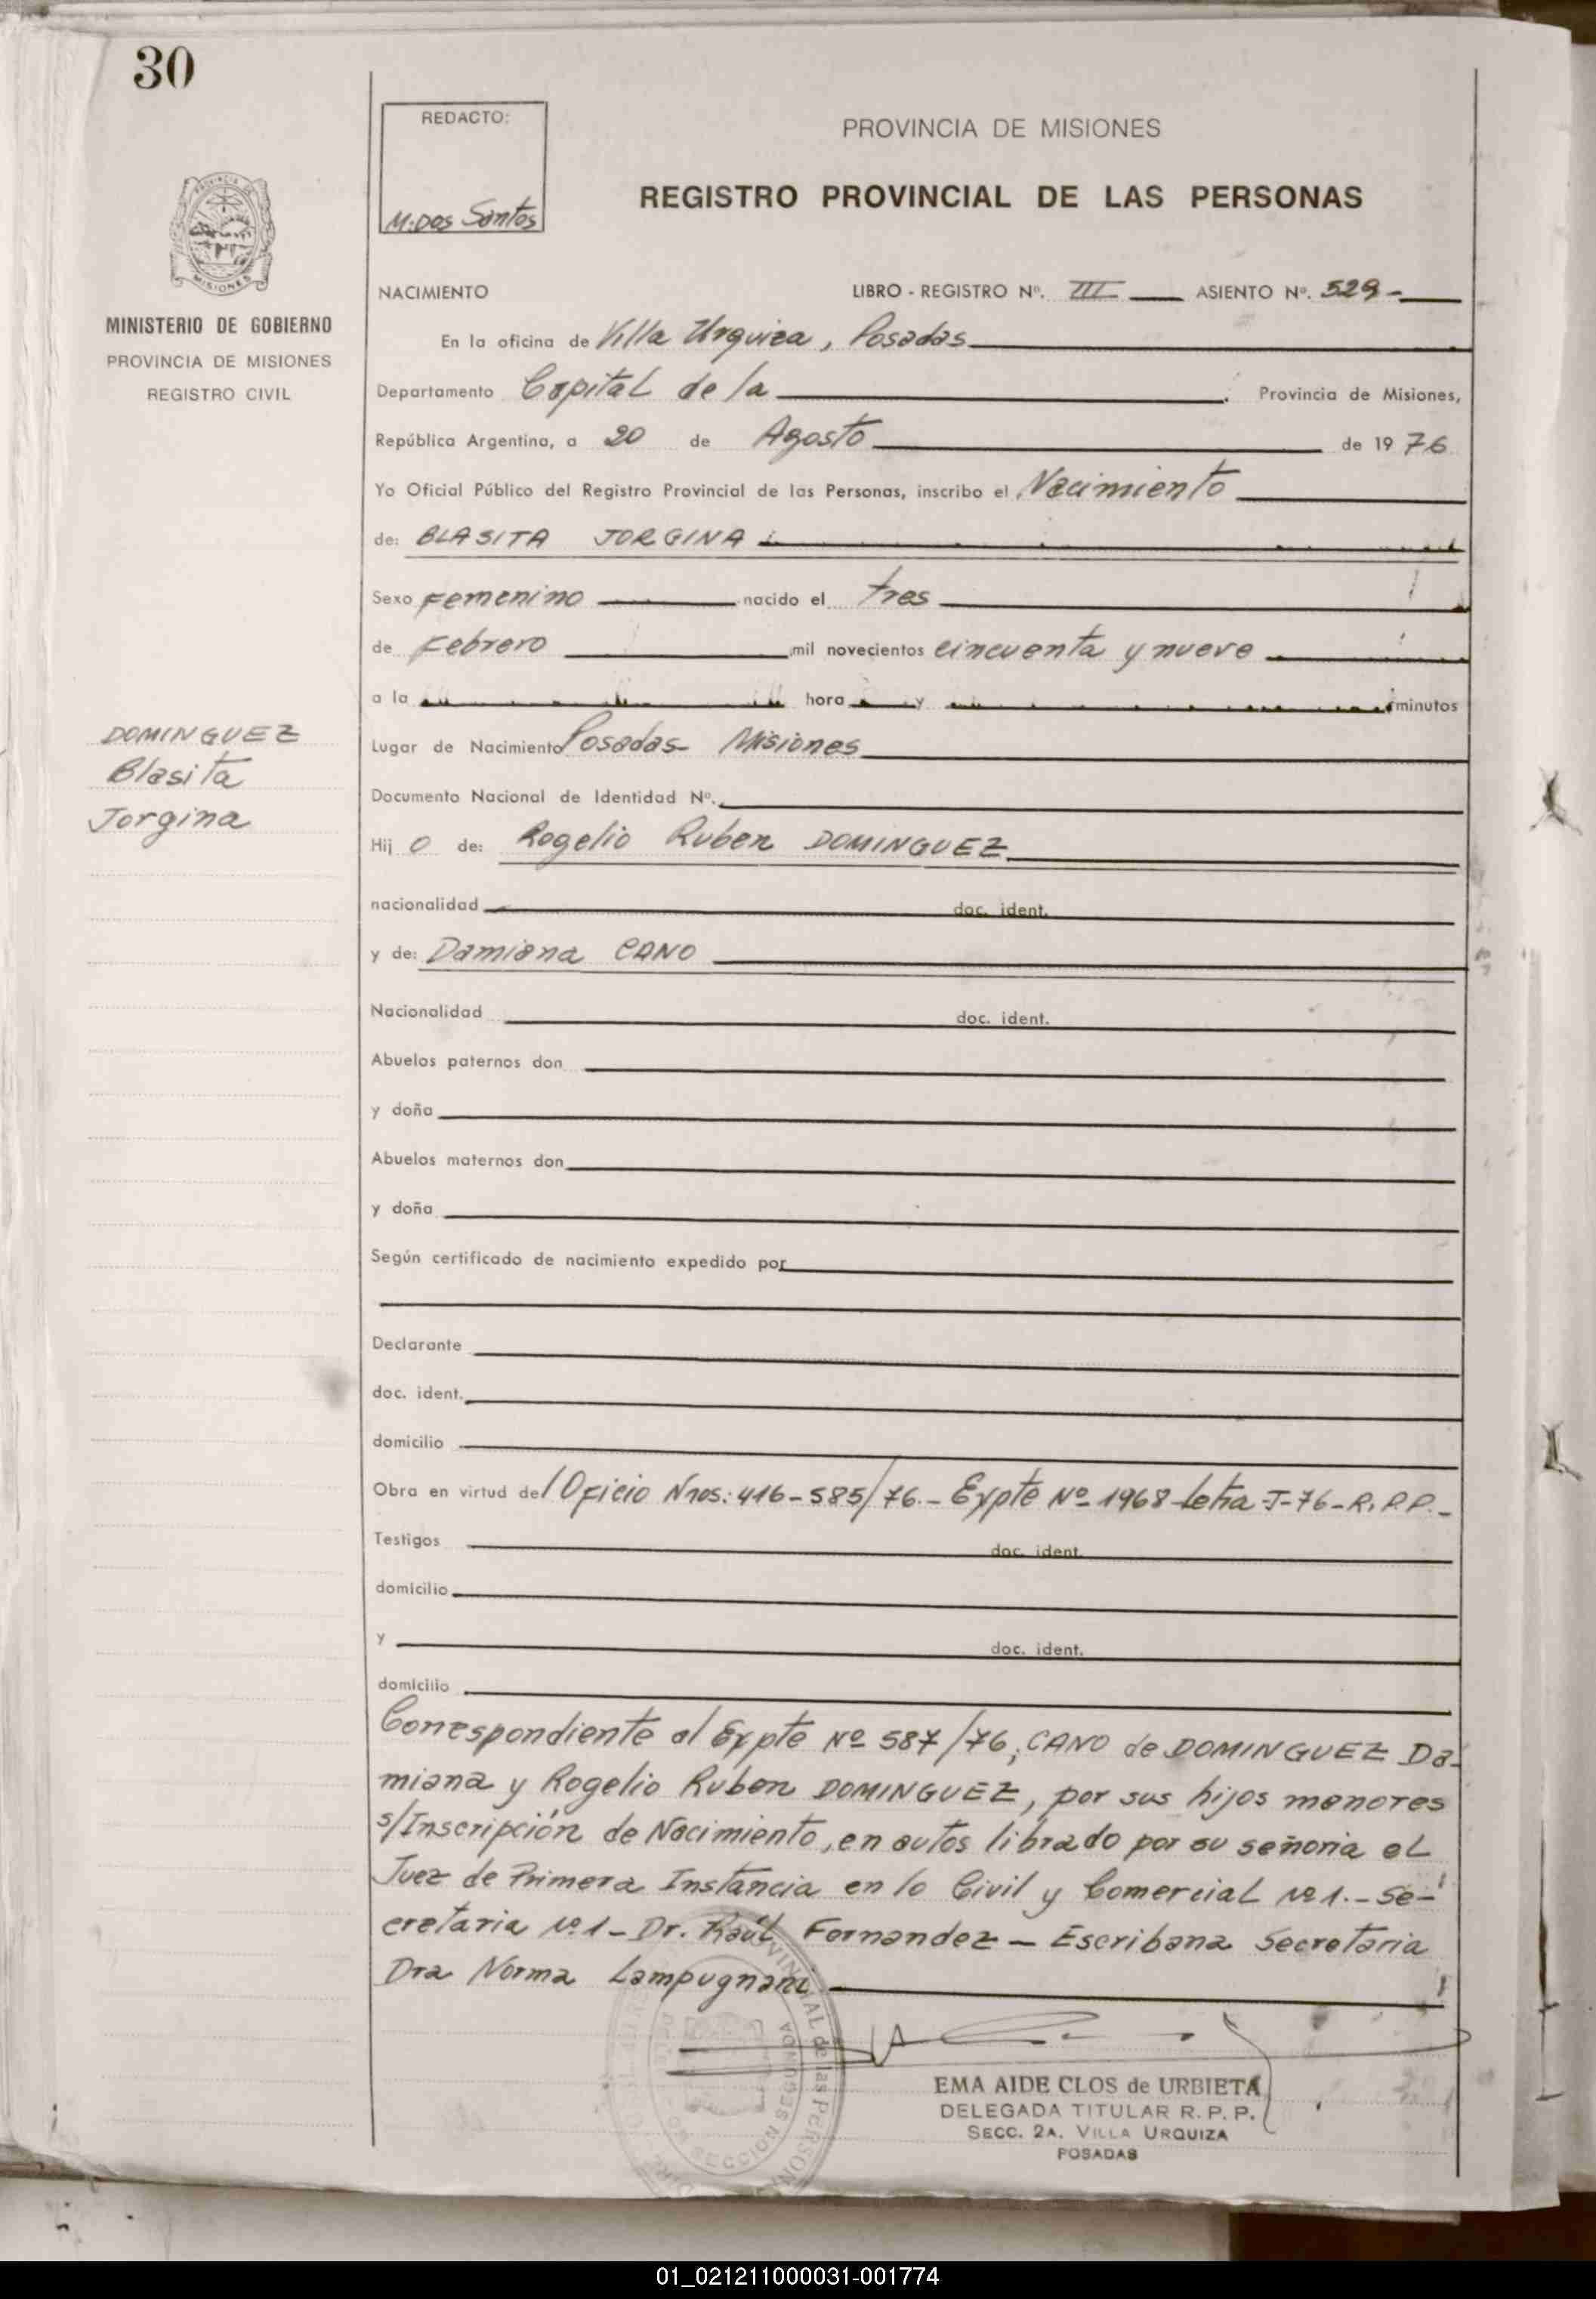 30
REDACTO:
M. Dos Santos
PROVINCIA DE MISIONES
REGISTRO PROVINCIAL DE LAS PERSONAS
PROVINCIA DE
MISIONES
MINISTERIO DE GOBIERNO
PROVINCIA DE MISIONES
REGISTRO CIVIL
NACIMIENTO LIBRO - REGISTRO Nº. III ASIENTO Nº. 529-
En la oficina de Villa Urquiza, Posadas
Departamento Capital de la . Provincia de Misiones,
República Argentina, a 20 de Agosto de 1976
Yo Oficial Público del Registro Provincial de las Personas, inscribo el Nacimiento
de: BLASITA JORGINA
Sexo Femenino nacido el tres
de Febrero mil novecientos cincuenta y nueve
a la hora y minutos
DOMINGUEZ
Blasita
Jorgina
Lugar de Nacimiento Posadas- Misiones
Documento Nacional de Identidad Nº.
Hij O de: Rogelio Ruben DOMINGUEZ
nacionalidad doc. ident.
y de: Damiana CANO
Nacionalidad doc. ident.
Abuelos paternos don
y doña
Abuelos maternos don
y doña
Según certificado de nacimiento expedido por
Declarante
doc. ident.
domicilio
Obra en virtud del Oficio Nros: 416-585/76.- Expte Nº 1968-Letra-J-76-R.P.P.-
Testigos doc. ident.
domicilio
y doc. ident.
domicilio
Correspondiente al Expte Nº 587/76; CANO de DOMINGUEZ Da-
miana y Rogelio Ruben DOMINGUEZ, por sus hijos menores
s/Inscripción de Nacimiento, en autos librado por su señoria el
Juez de Primera Instancia en lo Civil y Comercial Nº 1.- Se-
cretaria Nº 1- Dr. Raúl Fernandez - Escribana Secretaria
Dra Norma Lampugnani
EMA AIDE CLOS de URBIETA
DELEGADA TITULAR R. P. P.
SECC. 2A. VILLA URQUIZA
POSADAS
01_021211000031-001774